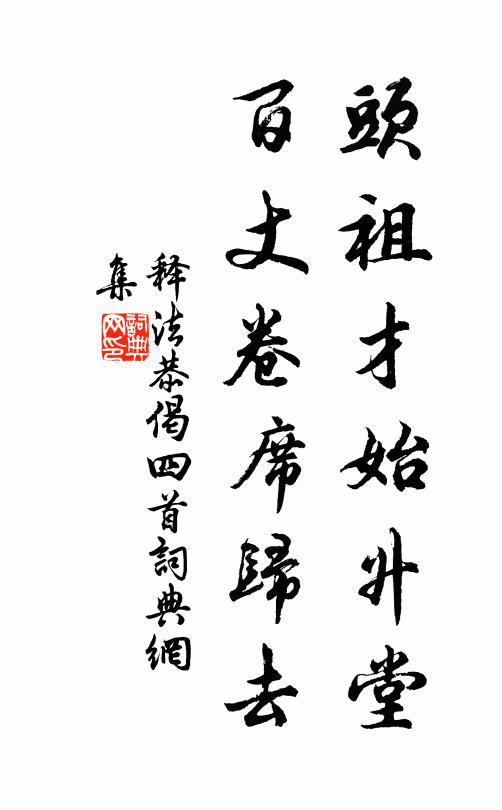 頭祖才始升堂
百丈卷席歸去
释法恭偈四首詞典網
集
詞典网印